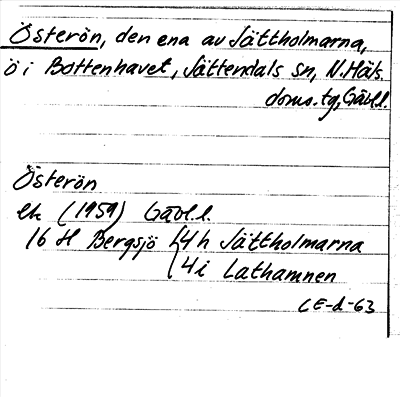 Österön, den ena av Jättholmarna,
ö i Bottenhavet, Jättendals sn, N. Häls.
doms. tg, Gävl.l.
Österön
ek (1959) Gävl.l.
16 H Bergsjö 4h Jättholmarna
4i Lathamnen
CE-d-63